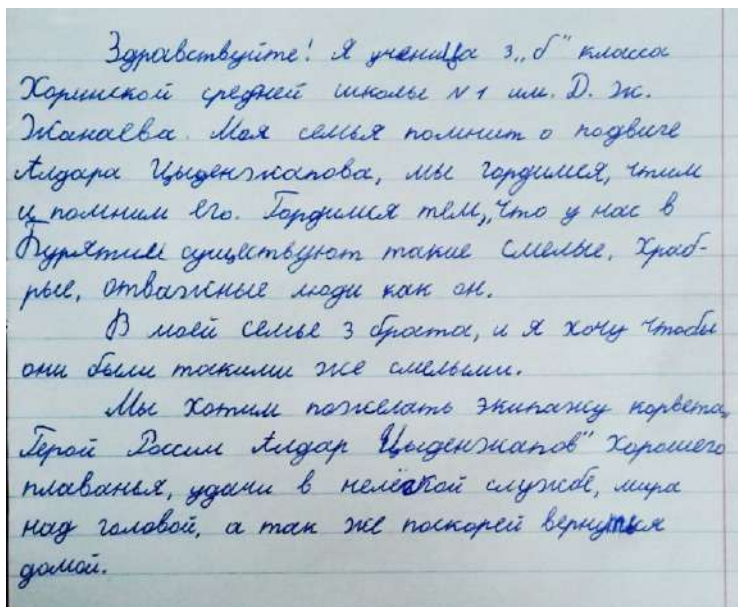 Здравствуйте! Я ученица 3 „б" класса
Хоринской средней школы №1 им. Д. Ж.
Жанаева. Моя семья помнит о подвиге
Алдара Цыденжапова, мы гордимся, чтим
и помним его. Гордимся тем, что у нас в
Бурятии существуют такие смелые, храб-
рые, отважные люди как он.
В моей семье 3 брата, и я хочу чтобы
они были такими же смелыми.
Мы хотим пожелать экипажу корвета„
Герой России Алдар Цыденжапов" хорошего
плаванья, удачи в нелёгкой службе, мира
над головой, а так же поскорей вернуться
домой.